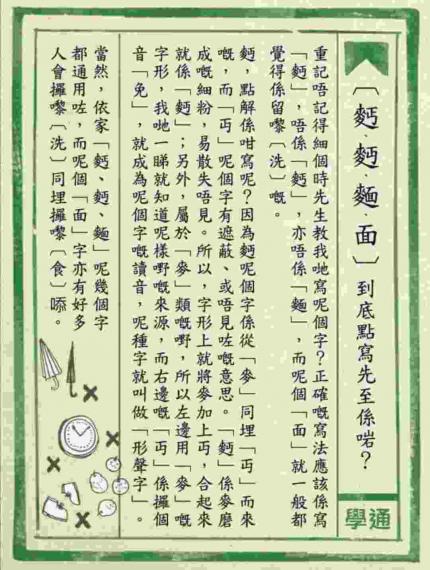 〔麪、麫、麵、面〕到底點寫先至係啱？
重記唔記得細個時先生教我哋寫呢個字？正確嘅寫法應該係寫
「麪」，唔係「麫」，亦唔係「麵」，而呢個「面」就一般都
覺得係留嚟〔洗〕嘅。
麪，點解係咁寫呢？因為麪呢個字係從「麥」同埋「丏」而來
嘅，而「丏」呢個字有遮蔽、或唔見咗嘅意思。「麪」係麥磨
成嘅細粉，易散失唔見。所以，字形上就將麥加上丏，合起來
就係「麪」；另外，屬於「麥」類嘅嘢，所以左邊用「麥」嘅
字形，我哋一睇就知道呢樣嘢嘅來源，而右邊嘅「丏」係攞個
音「免」，就成為呢個字嘅讀音，呢種字就叫做「形聲字」。
當然，依家「麪、麫、麵」呢幾個字
都通用咗，而呢個「面」字亦有好多
人會攞嚟〔洗〕同埋攞嚟〔食〕𠻹。
學通